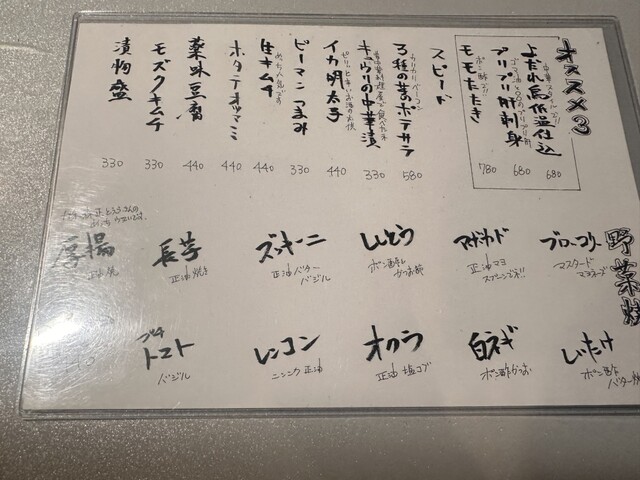 オススメ3
よだれ鳥低温仕込
680
プリプリ肝刺身
680
モモたたき
ポン酢で!!
780
スピード
3種の芋ポテサラ
カリカリベーコン
580
キュウリの中華漬
330
イカ明太子
440
ピーマンつまみ
330
生キムチ
440
ホタテオツマミ
440
薬味豆腐
440
モズクキムチ
330
漬物盛
330
野菜焼
ブロッコリー
マスタード
マヨネーズ
アボカド
正油マヨ
スプーンで!!
ししとう
ポン酢
かつお節
ズッキーニ
正油バター
バジル
長芋
正油焼き
厚揚
正油焼
しいたけ
ポン酢
バター焼
白ネギ
ポン酢かつお
オクラ
正油塩コブ
レンコン
ニンニク正油
プチ
トマト
バジル